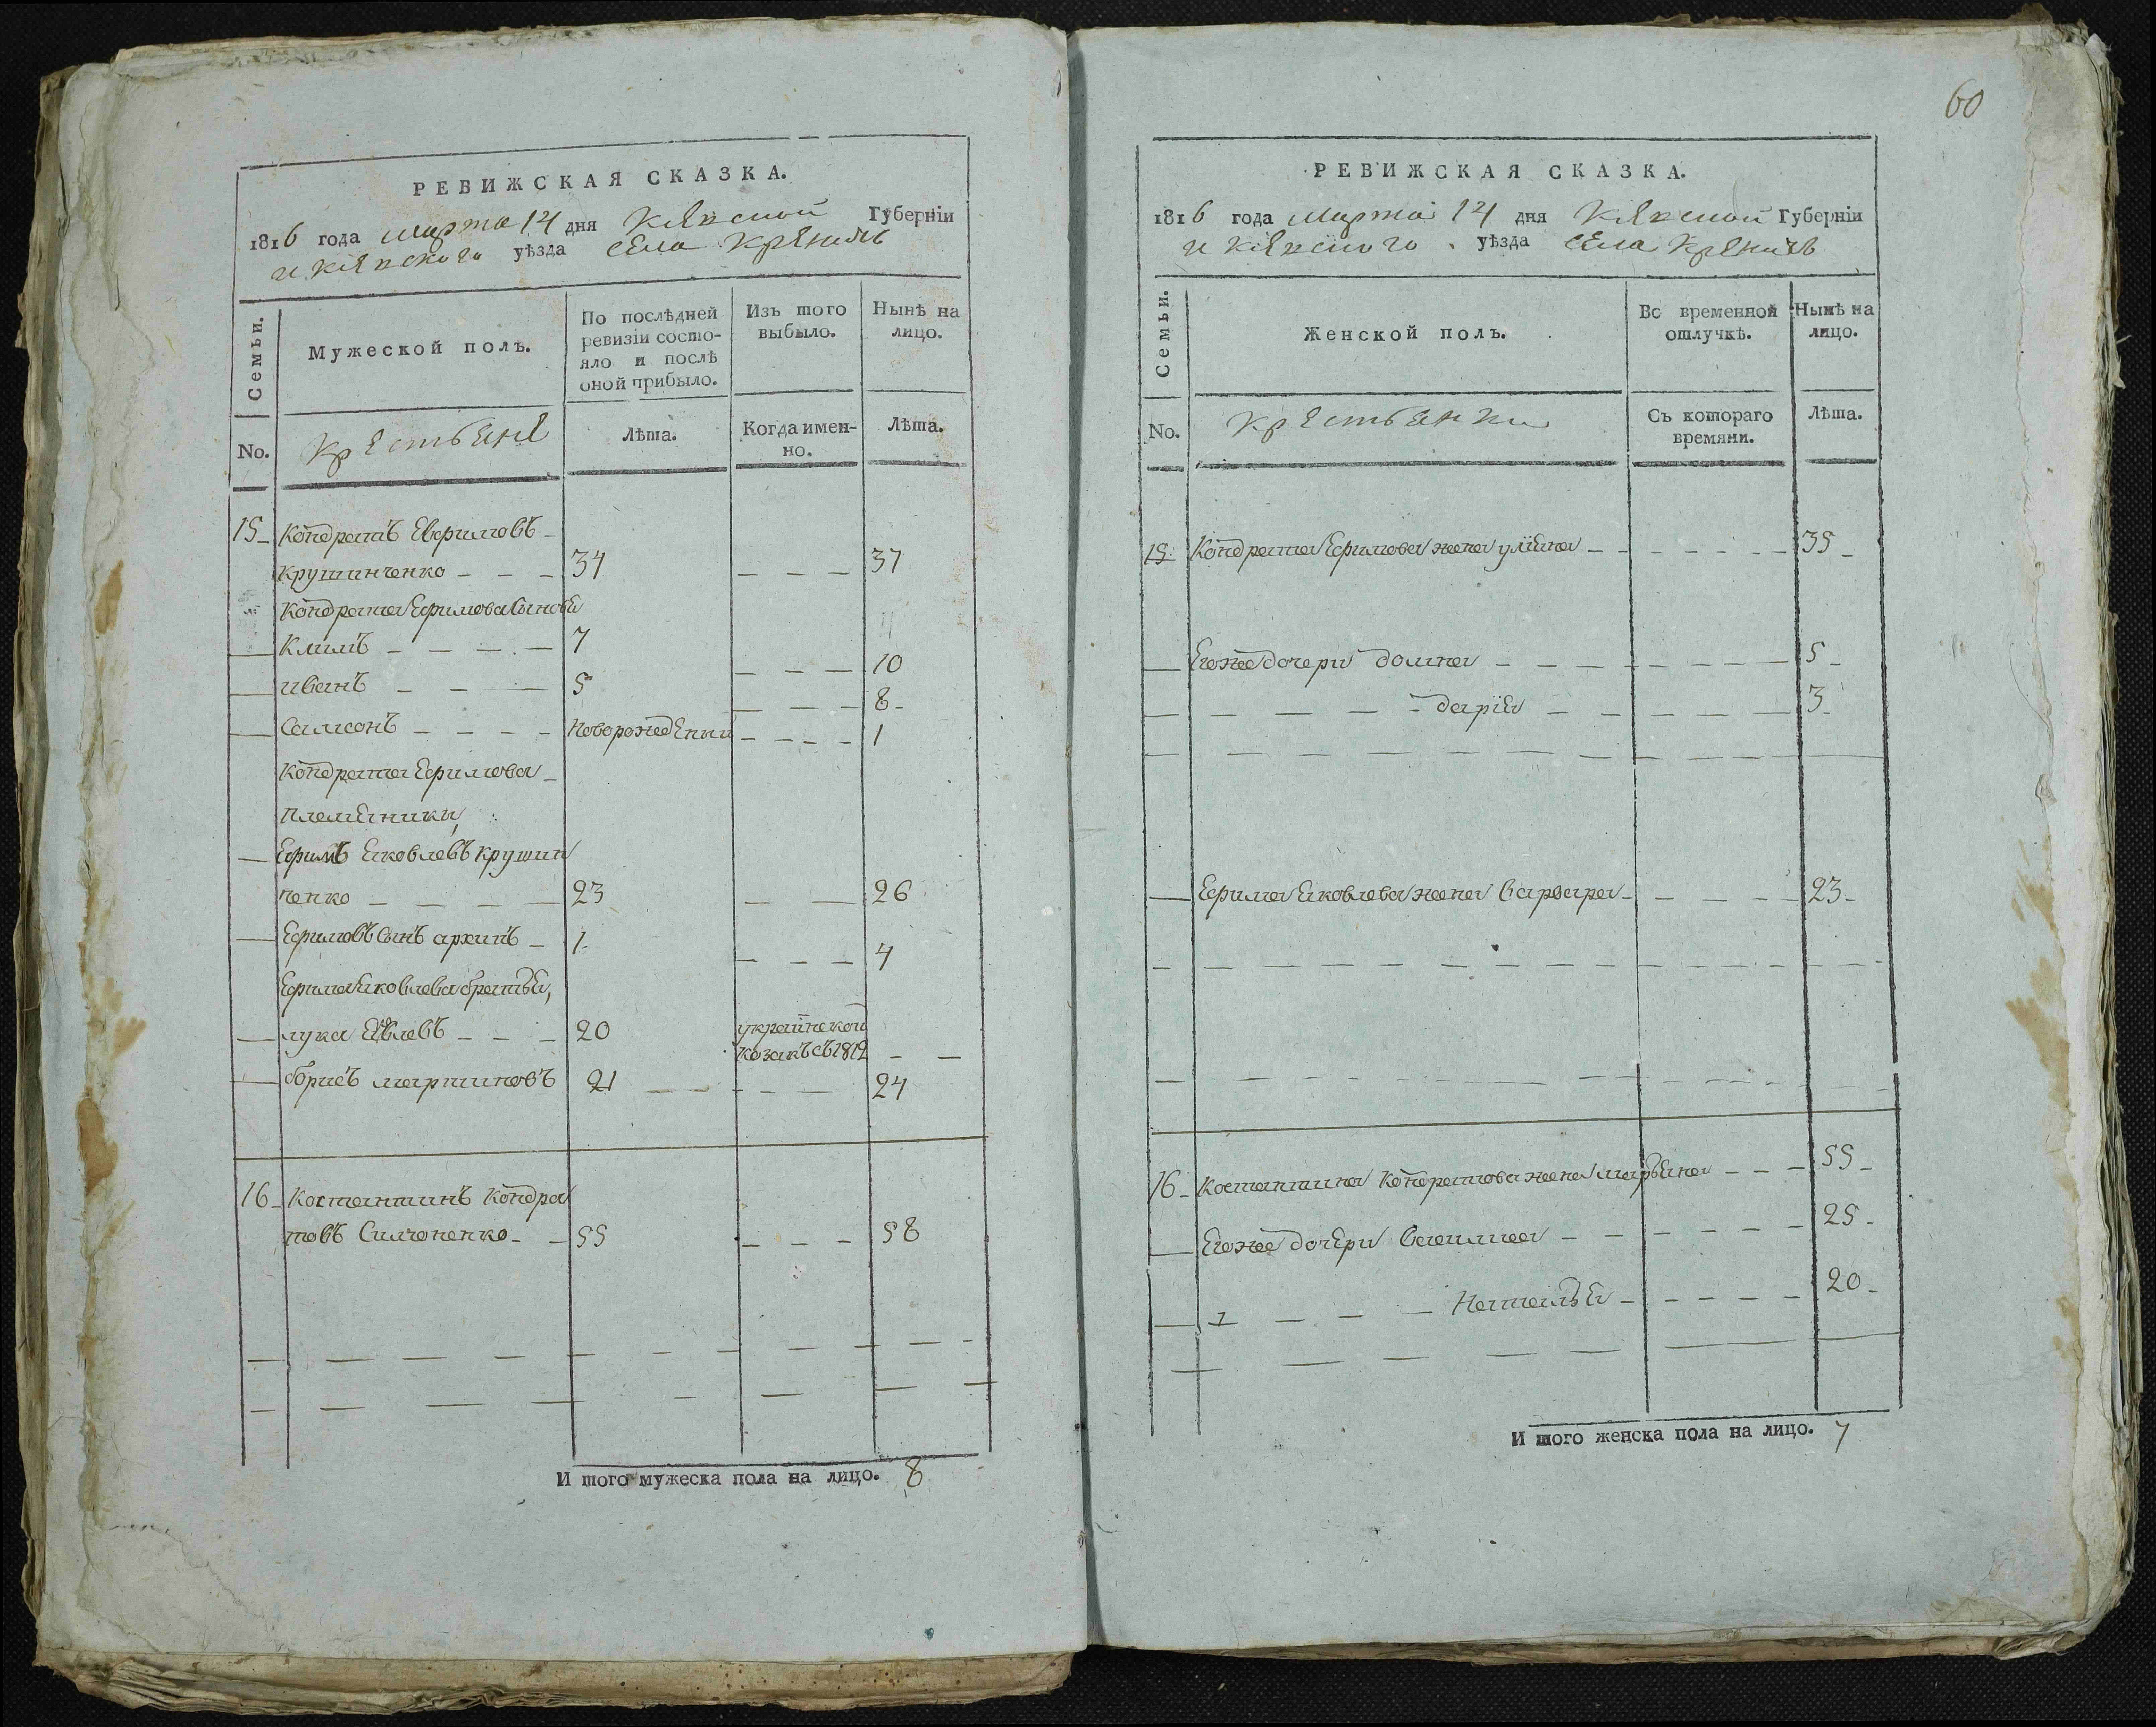 РЕВИЖСКАЯ СКАЗКА.
1816 года марта 14 дня Кіевской Губерніи
и Кіевского уѣзда села Креничъ
Семьи.
Мужеской полъ.
По послѣдней
ревизіи состо-
яло и послѣ
оной прибыло.
Изъ того
выбыло.
Нынѣ на
лицо.
No.
Крестьяне
Лѣта.
Когда имен-
но.
Лѣта.
15 Кондратъ Евфимовъ
Крушинченко 34 37
Кондрата Ефимова Сыновья
Климъ 7 10
иванъ 5 8
Самсонъ Новорожденный 1
Кондрата Ефимова
племяники,
Ефимъ Яковлевъ Крушин
ченко 23 26
Ефимовъ Сынъ архипъ 1 4
Ефима Яковлева братья,
лука 20 украинской
козакъ съ 1812
борисъ мартиновъ 21 24
16 Костантинъ Кондра
товъ Симоненко 55 58
И того мужеска пола на лицо. 8
60
РЕВИЖСКАЯ СКАЗКА.
1816 года марта 14 дня Кіевской Губерніи
и Кіевского уѣзда села Креничъ
Семьи.
Женской полъ.
Во временной
отлучкѣ.
Нынѣ на
лицо.
No.
Крестьянки
Съ котораго
времяни.
Лѣта.
15 Кондрата Ефимова жена уліяна 35
Егоже дочери домна 5
дарія 3
Ефима Яковлева жена Варвара 23
16 Костантина Кондратова жена марьяна 55
Егоже дочери 25
Наталья 20
И того женска пола на лицо. 7